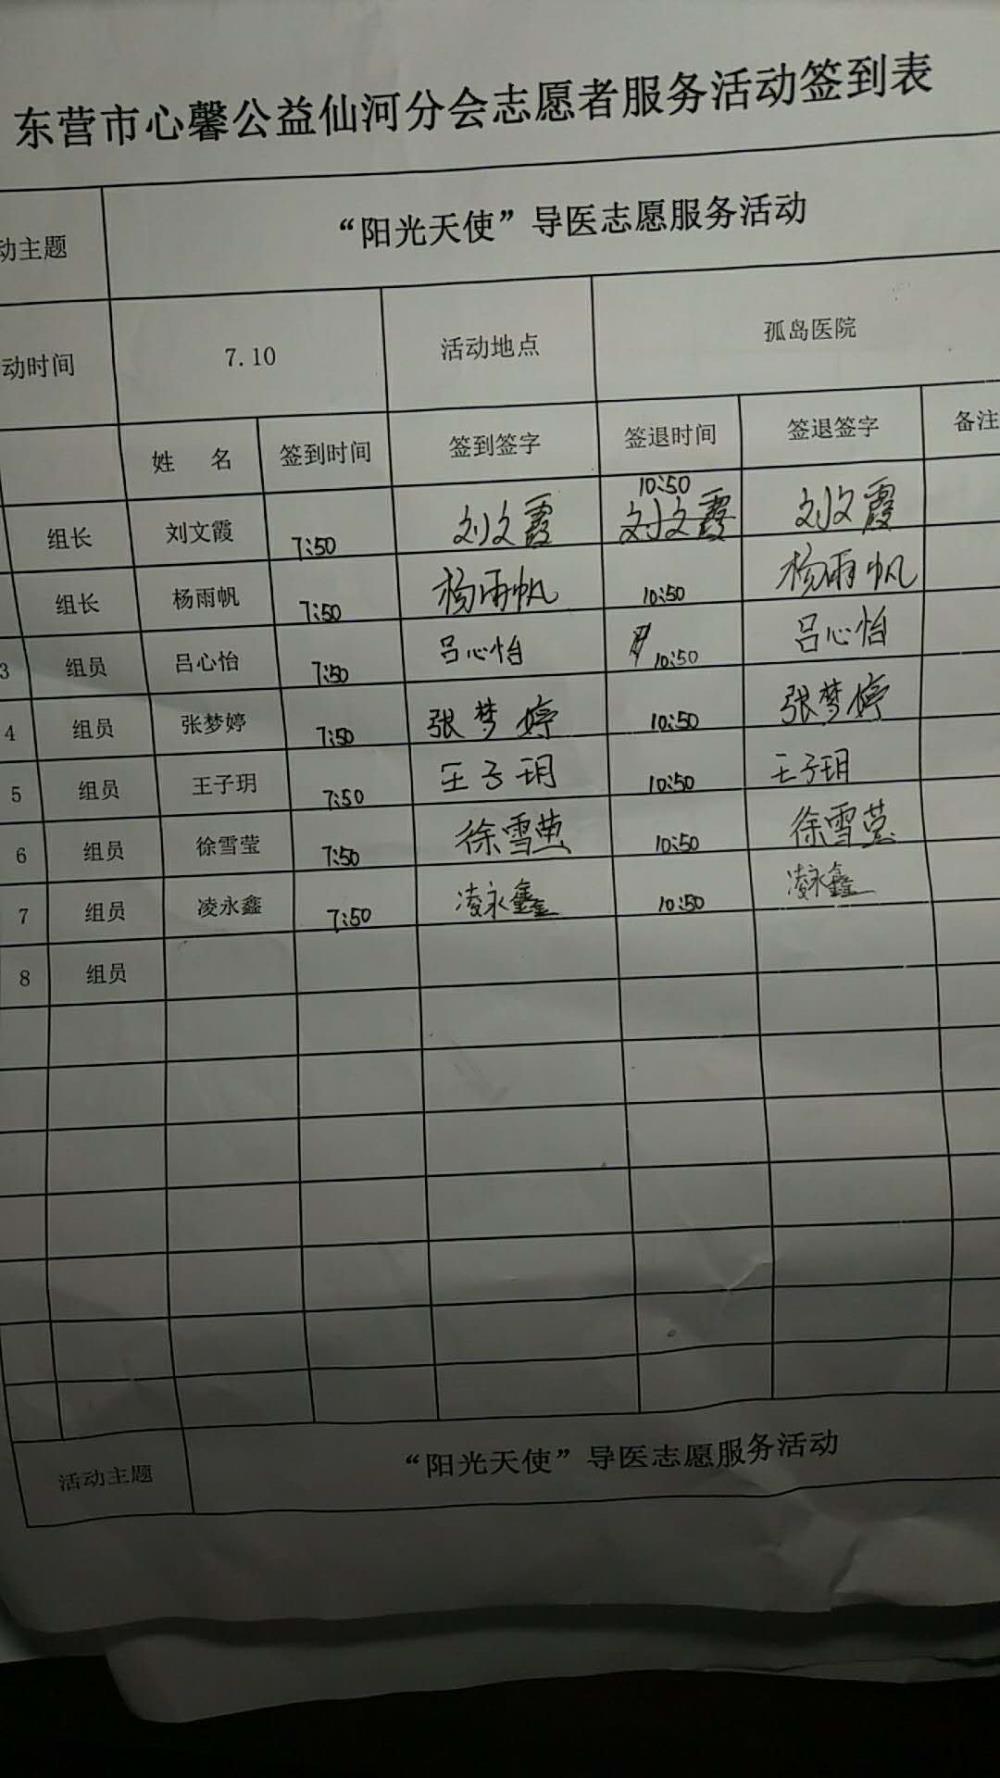 东营市心馨公益仙河分会志愿者服务活动签到表
动主题 “阳光天使”导医志愿服务活动
动时间 7.10 活动地点 孤岛医院
姓 名 签到时间 签到签字 签退时间 签退签字 备注
10:50
组长 刘文霞 7:50 刘文霞 刘文霞 刘文霞
组长 杨雨帆 7:50 杨雨帆 10:50 杨雨帆
3 组员 吕心怡 7:50 吕心怡 10:50 吕心怡
4 组员 张梦婷 7:50 张梦婷 10:50 张梦婷
5 组员 王子玥 7:50 王子玥 10:50 王子玥
6 组员 徐雪莹 7:50 徐雪莹 10:50 徐雪莹
7 组员 凌永鑫 7:50 凌永鑫 10:50 凌永鑫
8 组员
活动主题 “阳光天使”导医志愿服务活动